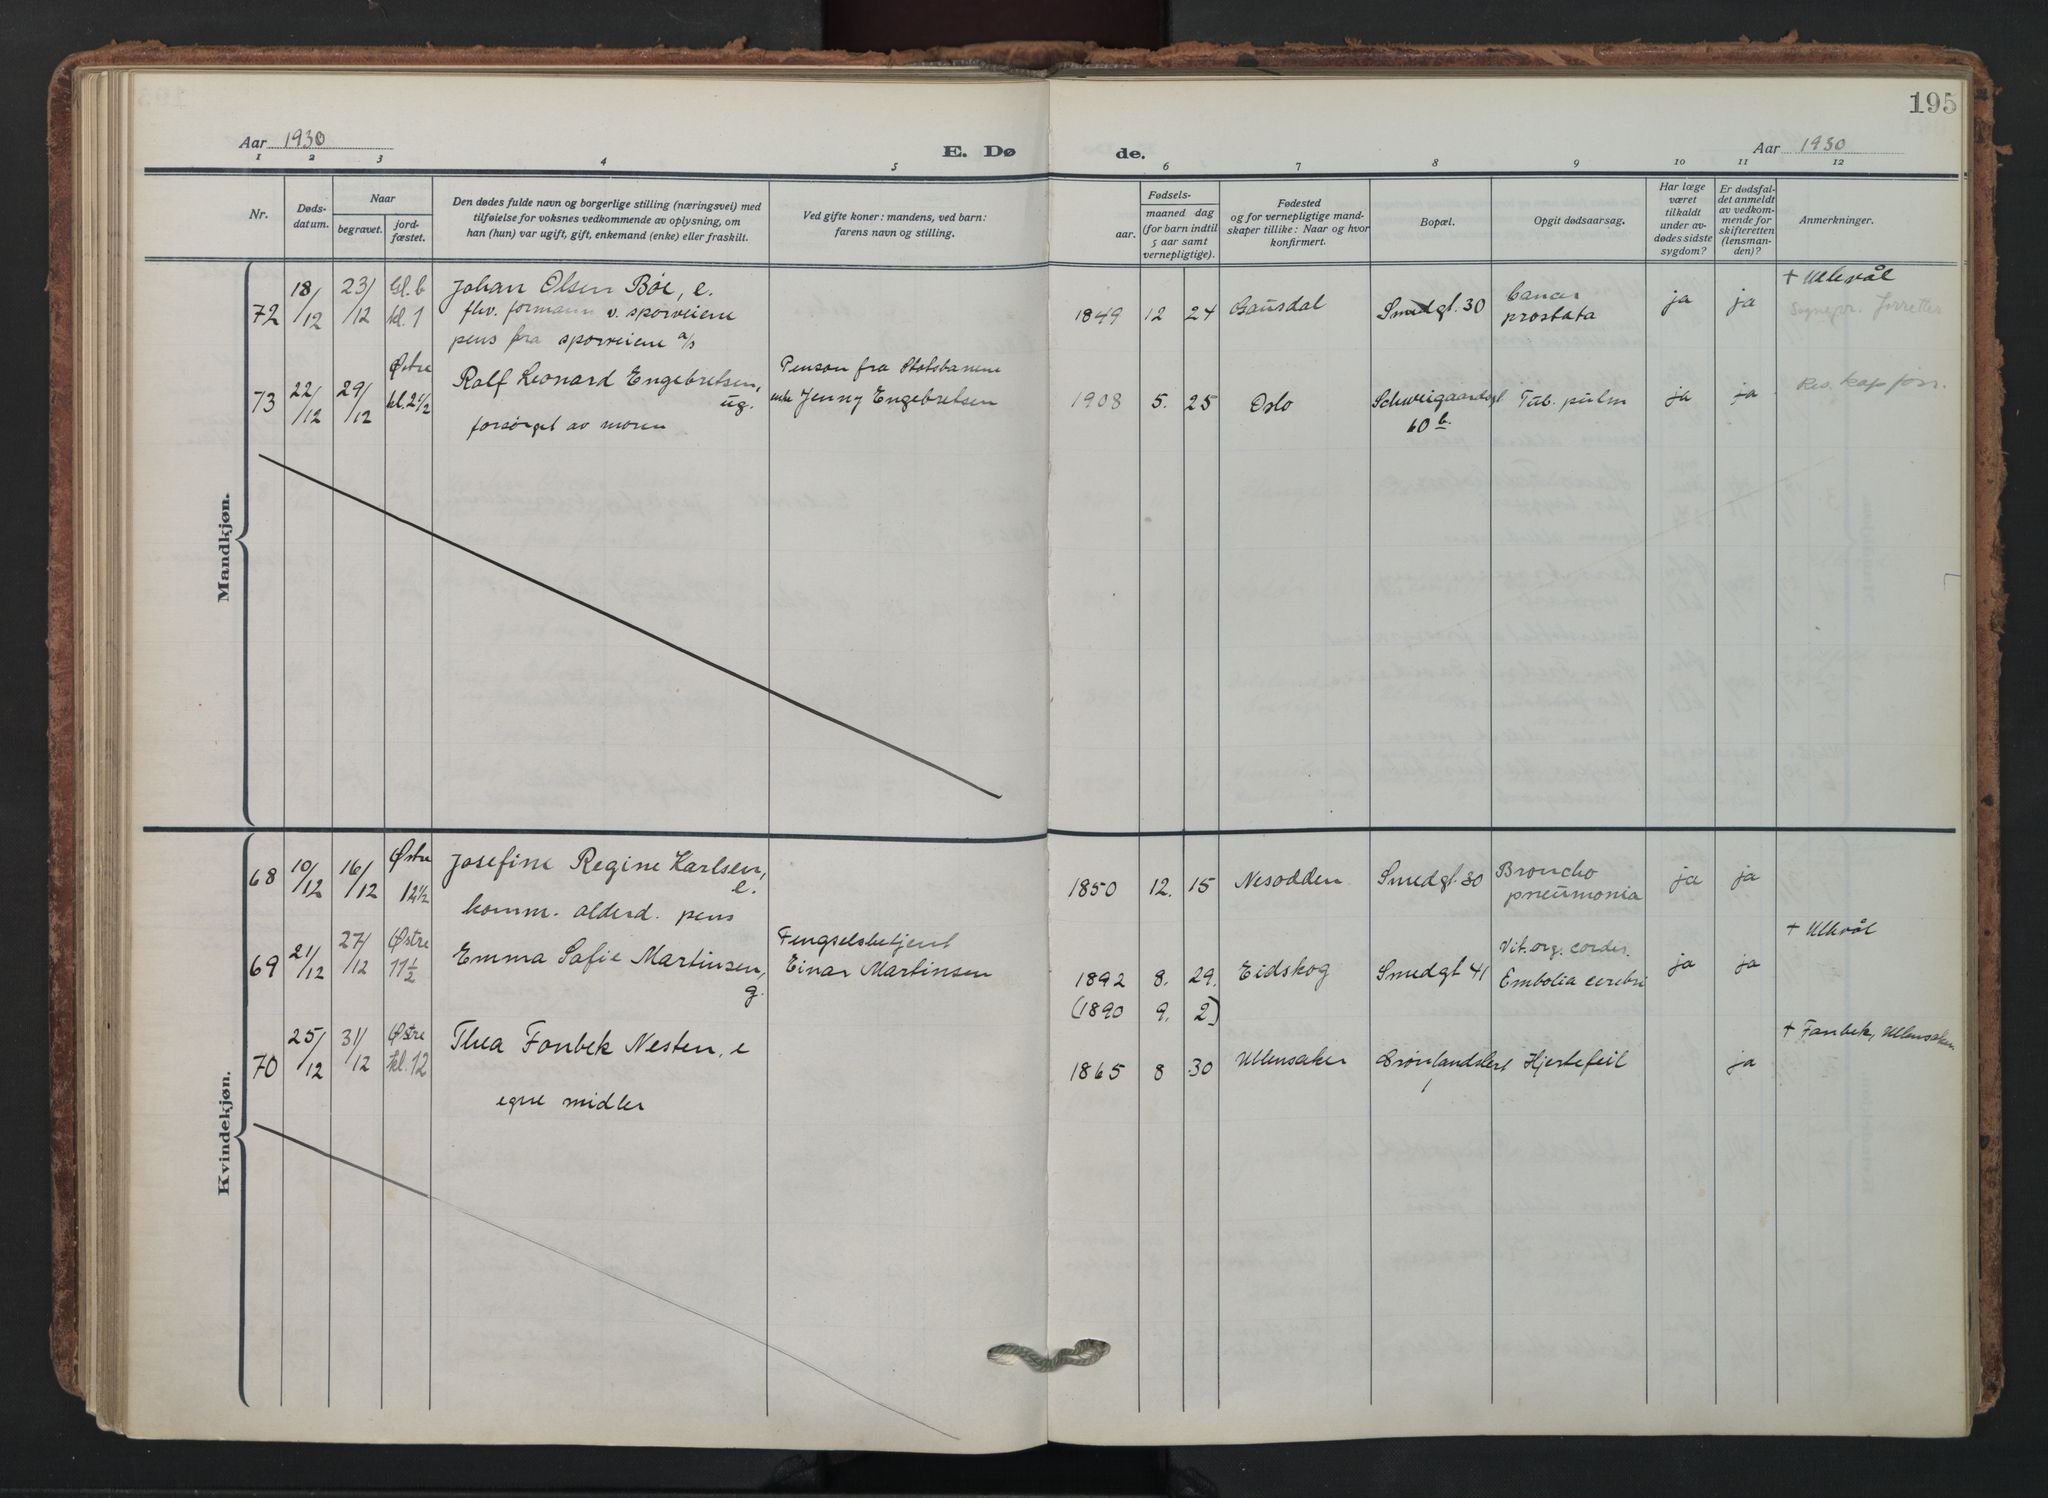 195
Aar 1930
E. Dø
de.
Aar 1930
1 2 3 4 5 6 7 8 9 10 11 12
Nr.
Døds-
datum.
Naar
begravet.
jord-
fæstet.
Den dødes fulde navn og borgerlige stilling (næringsvei) med
tilføielse for voksnes vedkommende av oplysning, om
han (hun) var ugift, gift, enkemand (enke) eller fraskilt.
Ved gifte koner: mandens, ved barn:
farens navn og stilling.
Fødsels-
aar.
maaned dag
(for barn indtil
5 aar samt
vernepligtige).
Fødested
og for vernepligtige mand-
skaper tillike: Naar og hvor
konfirmert.
Bopæl.
Opgit dødsaarsag.
Har læge
været
tilkaldt
under av-
dødes sidste
sygdom?
Er dødsfal-
det anmeldt
av vedkom-
mende for
skifteretten
(lensman-
den)?
Anmerkninger.
Mandkjøn.
72 18/12 23/12 Gl. b kl. 1
Johan Olsen Bøe, e.
fhv. formann v. sporveiene
pens fra sporveiene a/s
1849 12 24 Gausdal Smedgt. 30
Cancer
prostata
ja ja
+ Ullevål
Sognepr. forretter
73 22/12 29/12 Østre kl. 2 1/2
Rolf Leonard Engebretsen,
ug.
forsørget av moren
Pension fra Statsbanene
enke Jenny Engebretsen
1908 5. 25 Oslo
Schweigaardsgt
60 b.
Tub. pulm ja ja
Res. kap forr.
Kvindekjøn.
68 10/12 16/12 Østre 12 1/2
Josefine Regine Karlsen,
e.
komm. alderd. pens
1850 12. 15 Nesodden Smedgt. 30
Broncho
pneumonia
ja ja
69 21/12 27/12 Østre 11 1/2
Emma Sofie Martinsen,
g.
Fengselsbetjent
Einar Martinsen
1892 8. 29.
(1890 9. 2)
Eidskog Smedgt 41
Vit. org. cordis.
Embolia cerebri
ja ja
+ Ullevål
70 25/12 31/12 Østre kl. 12
Thea Fonbek Nesten, e
egne midler
1865 8 30 Ullensaker
Grønlandsleret
1
Hjertefeil
ja
+ Fanbek, Ullensaker.